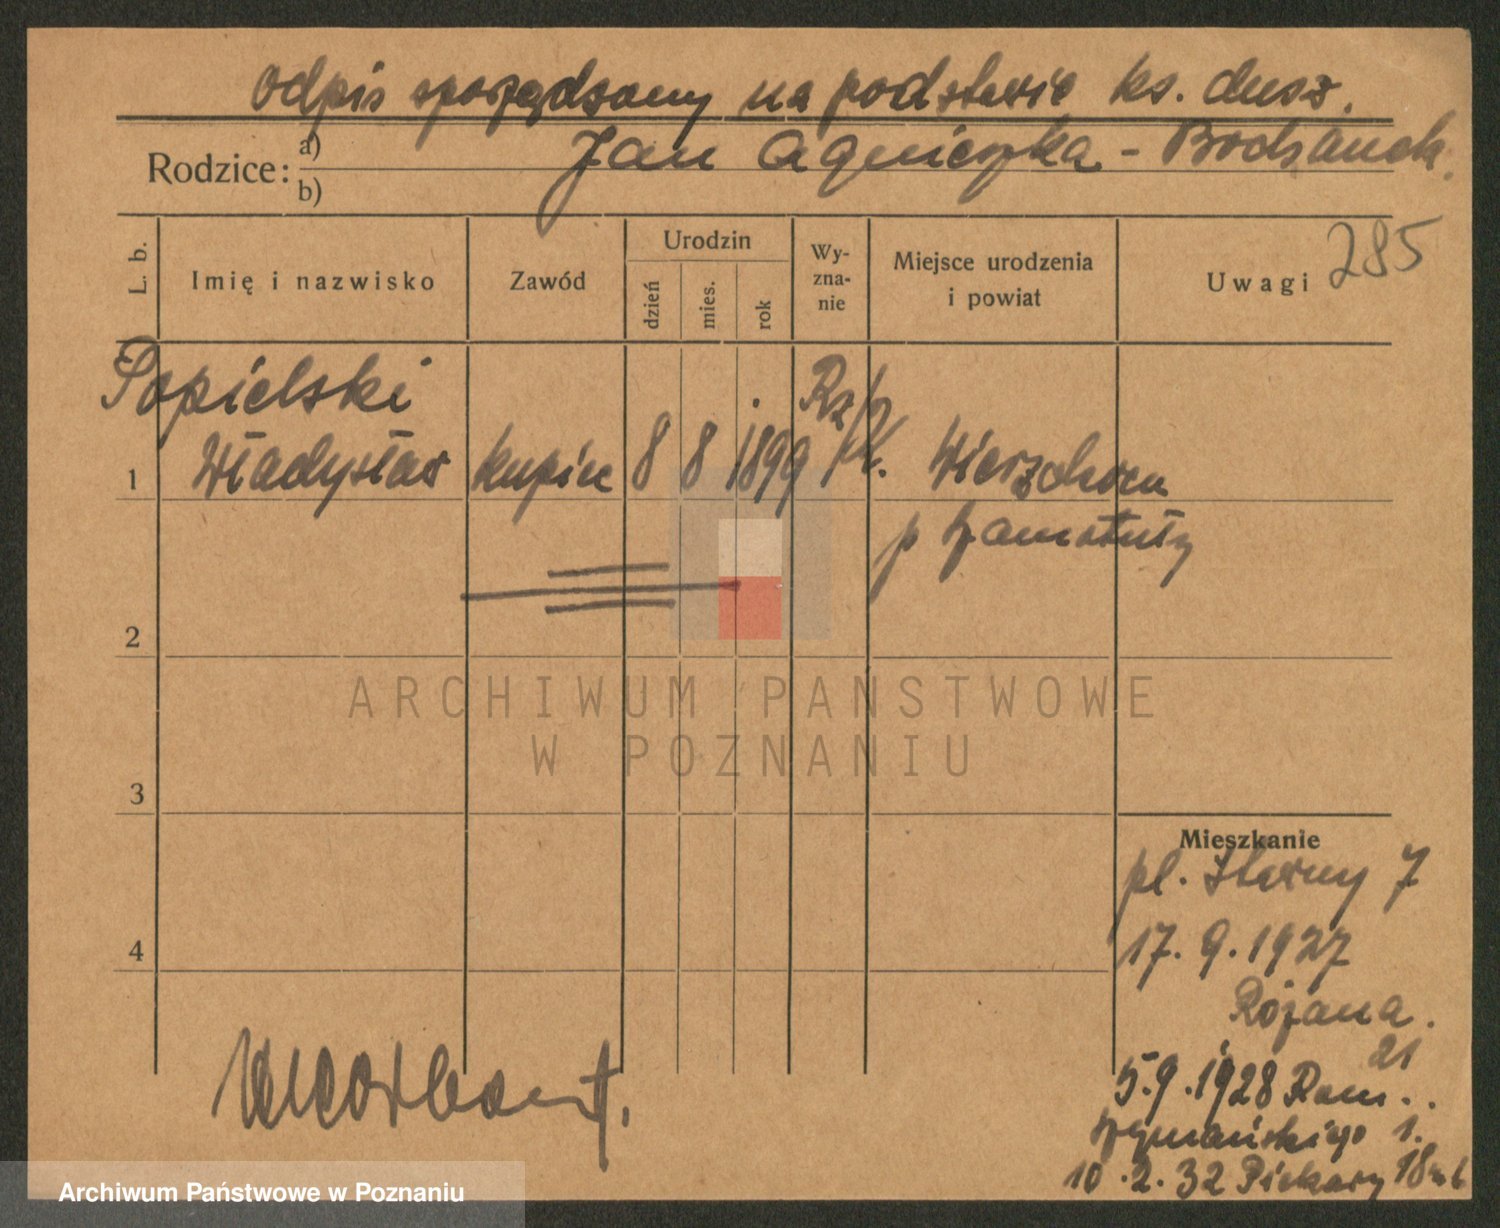 Odpis sporządzony na podstawie ks. dusz.
Rodzice: a) Jan Agnieszka - Bodzanek
b)
L. b. Imię i nazwisko Zawód Urodzin dzień mies. rok Wy-zna-nie Miejsce urodzenia i powiat Uwagi 285
Popielski Rz/k.
1 Władysław kupiec 8 8 1899 Wierzchocin
p Szamotuły
2
ARCHIWUM PAŃSTWOWE
W POZNANIU
3
Mieszkanie
pl. Sławny 7
4 17. 9. 1927
Różana.
21
5.9.1928 Rom..
Szymańskiego 1.
10.2.32 Piekary 18
Archiwum Państwowe w Poznaniu